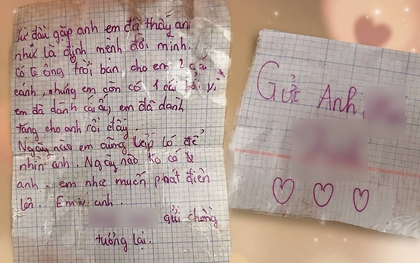 Từ đầu gặp anh em đã thấy anh
như là định mệnh đời mình.
Có lẽ ông trời bán cho em 2 cái
cánh, nhưng em còn có 1 cái
em đã dành cái ấy em đã dành
tặng cho anh rồi đấy.
Ngày nào em cũng lấp ló để
nhìn anh. Ngày nào ko có
anh. em như muốn phát điên
lên. Em anh.
gửi chồng
tương lai.
Gửi Anh